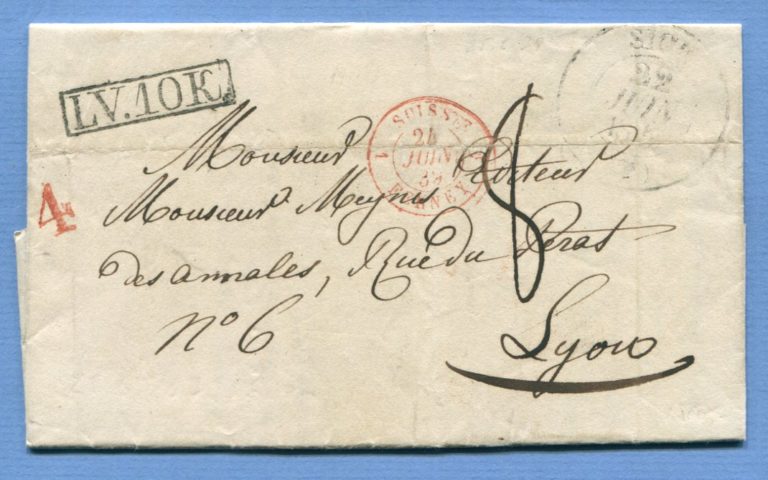 LV.10K
SUISSE
24
JUIN
39
FERNEY
1
SION
22
JUIN
4
8
Monsieur
Monsieur Meynis Editeur
des annales, Rue du Perat
No 6
Lyon